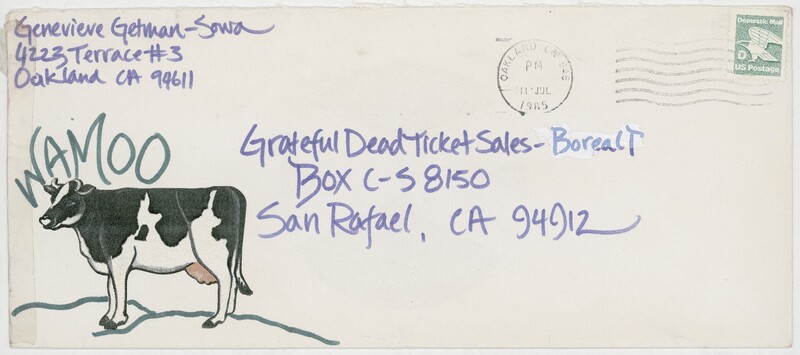 Genevieve Getman-Sowa
4223 Terrace #3
Oakland CA 94611
OAKLAND CA 946
PM
11 JUL
1985
Domestic Mail
D
US Postage
WAMOO
Grateful Dead Ticket Sales - Borealt
BOX C-S 8150
San Rafael, CA 94912